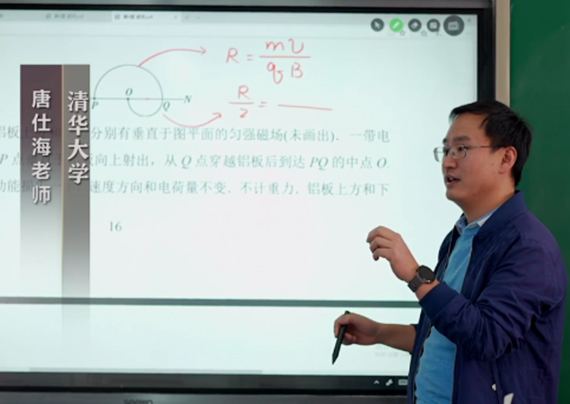 R = mv/qB
R/2 =
P O Q N
铝板上 分别有垂直于图平面的匀强磁场(未画出)．一带电
P点 向上射出，从Q点穿越铝板后到达PQ的中点O．
动能 速度方向和电荷量不变．不计重力．铝板上方和下
16
唐仕海老师
清华大学